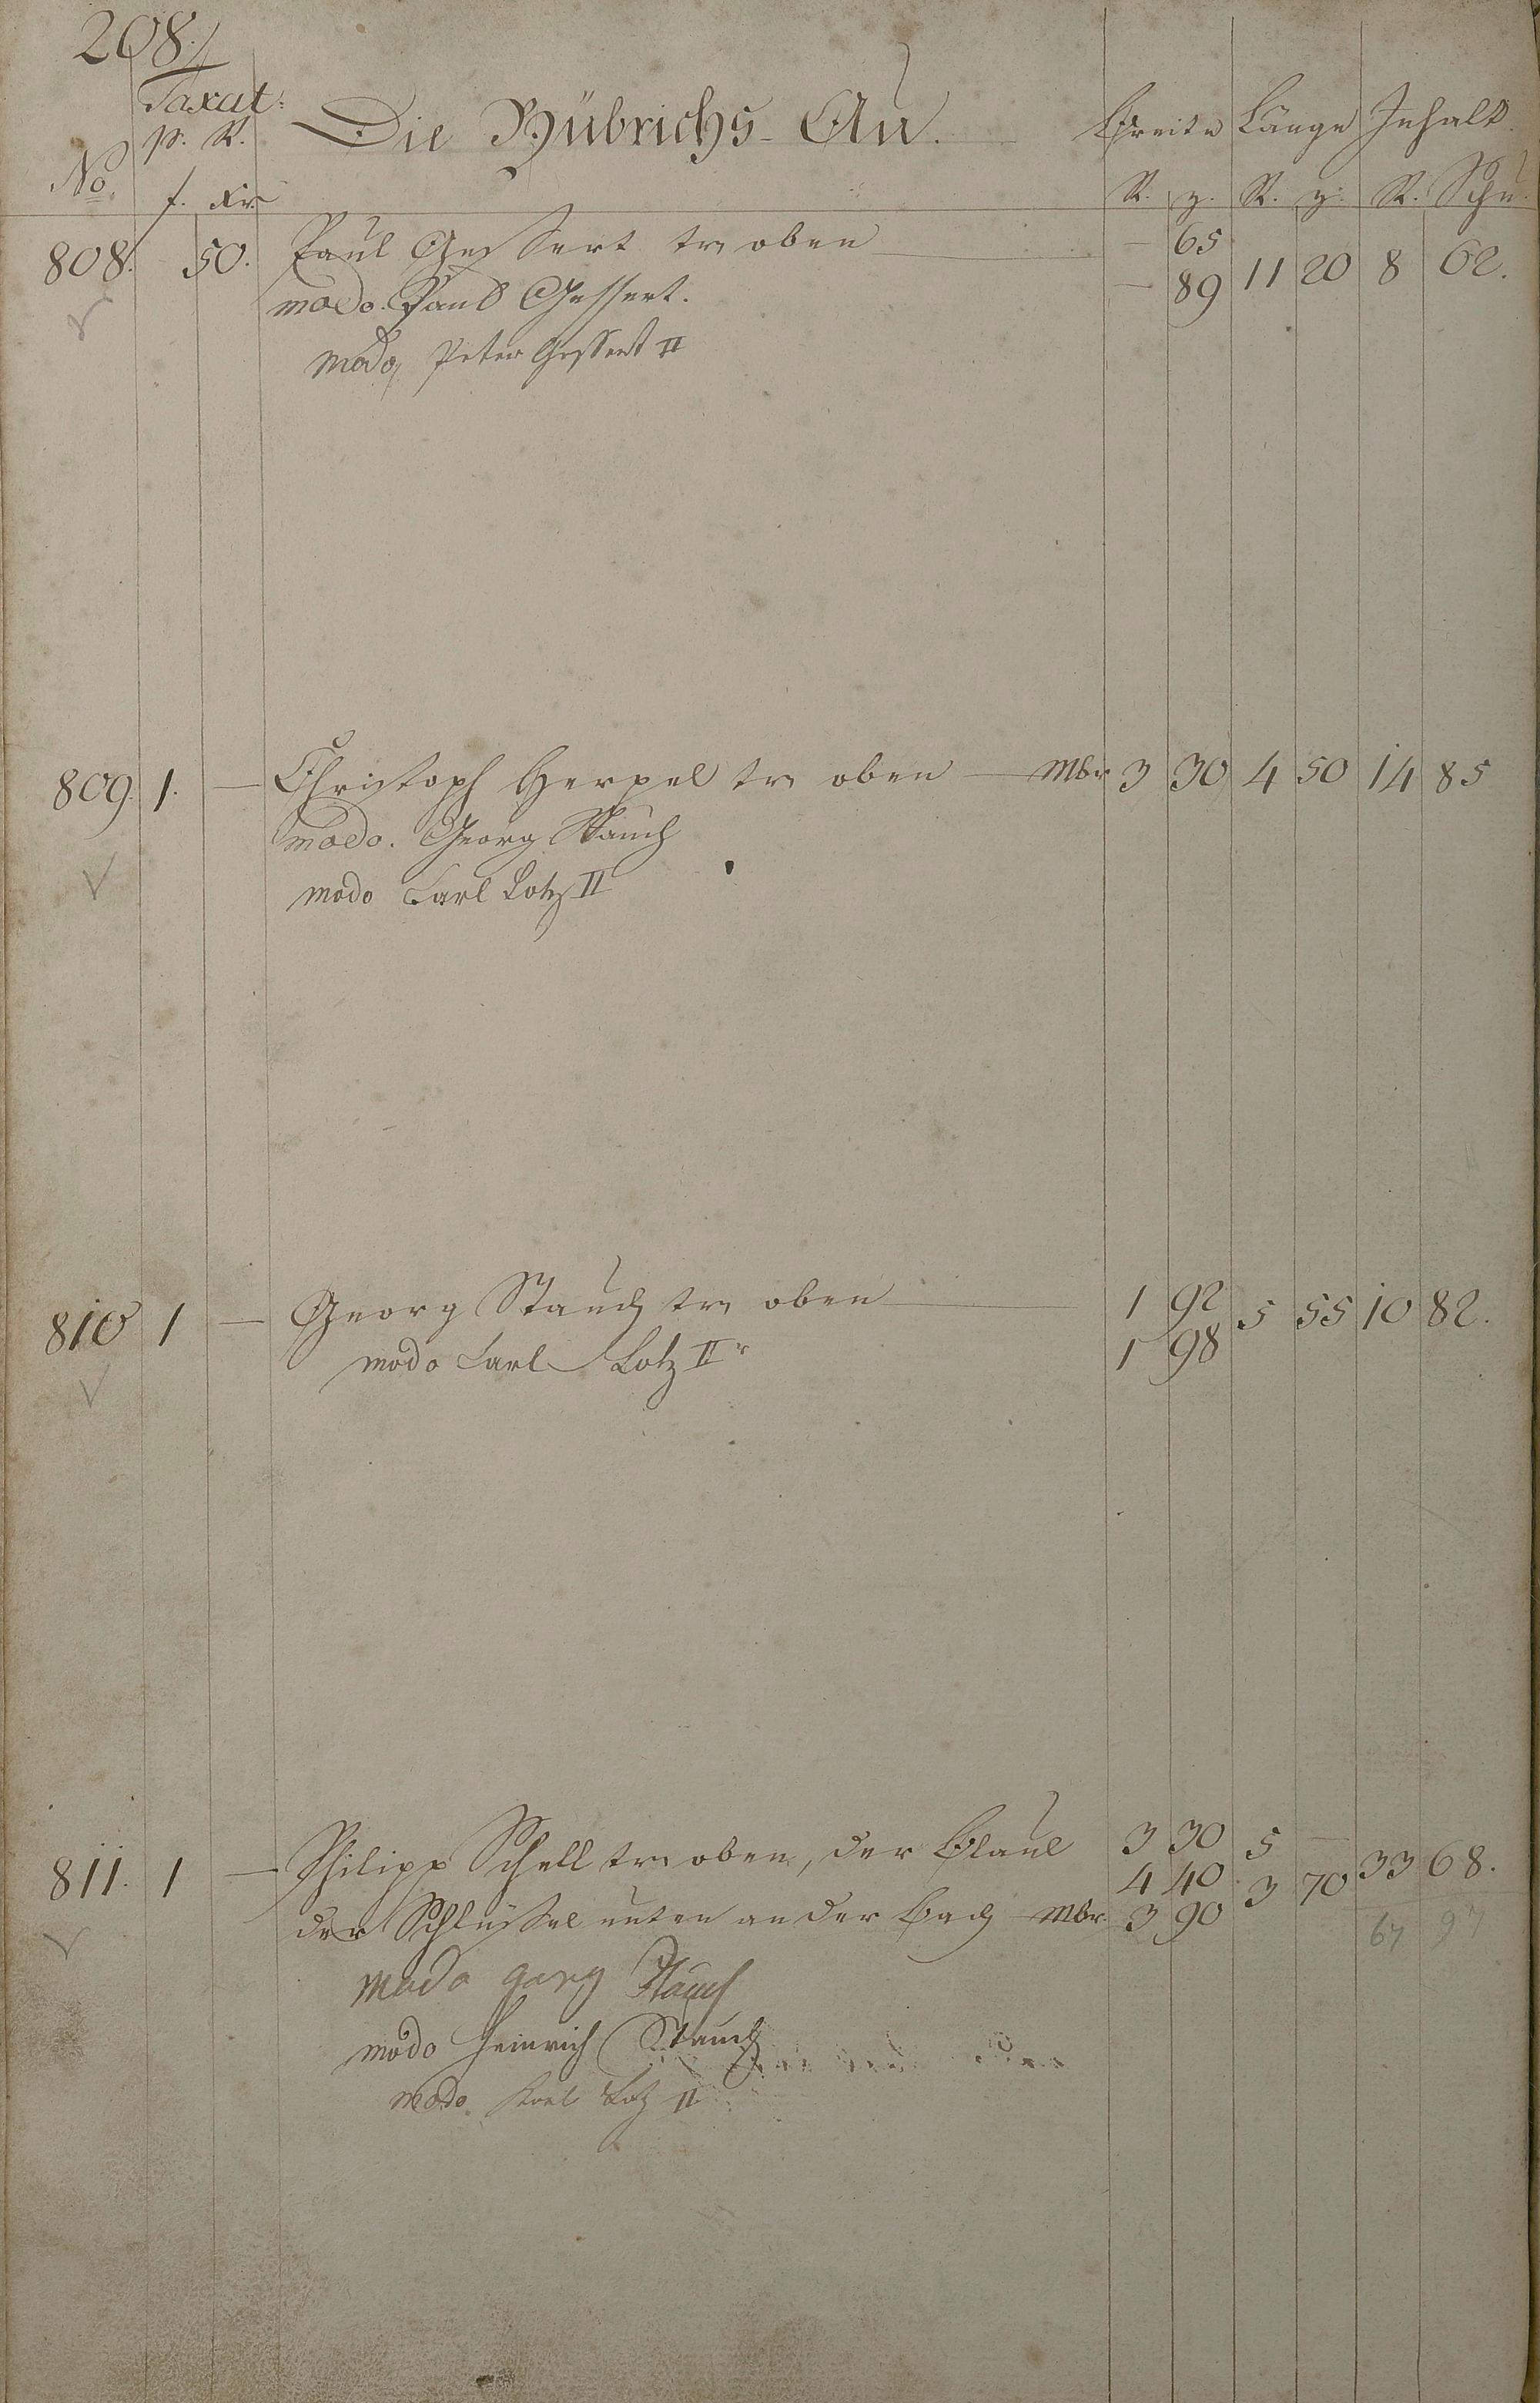 208.
Taxat:
p. R.
Die Hübrichs-Au.
Breite Länge Inhalt
No. f. Xr.
R. z. R. z. R. Schu.
808. 50. Paul Gessert tr. oben — 65 11 20 8 62.
— 89
modo. Paul Gessert.
modo Peter Gessert II
809. 1. — Christoph Herpel tr. oben — Mbr 3 30 4 50 14 85
modo. Georg Stauch
modo Carl Lotz II
810 1 — Georg Stauch tr. oben 1 92 5 55 10 82.
1 98
modo Carl Lotz IIr
811. 1 — Philipp Schell tr. oben, der 3 30 5 — 33 68.
4 40 3 70
der Schlüssel unten an der Bach Mbr. 3 90
67 97
modo Georg Stauch
modo Heinrich Stauch
modo Karl Lotz II